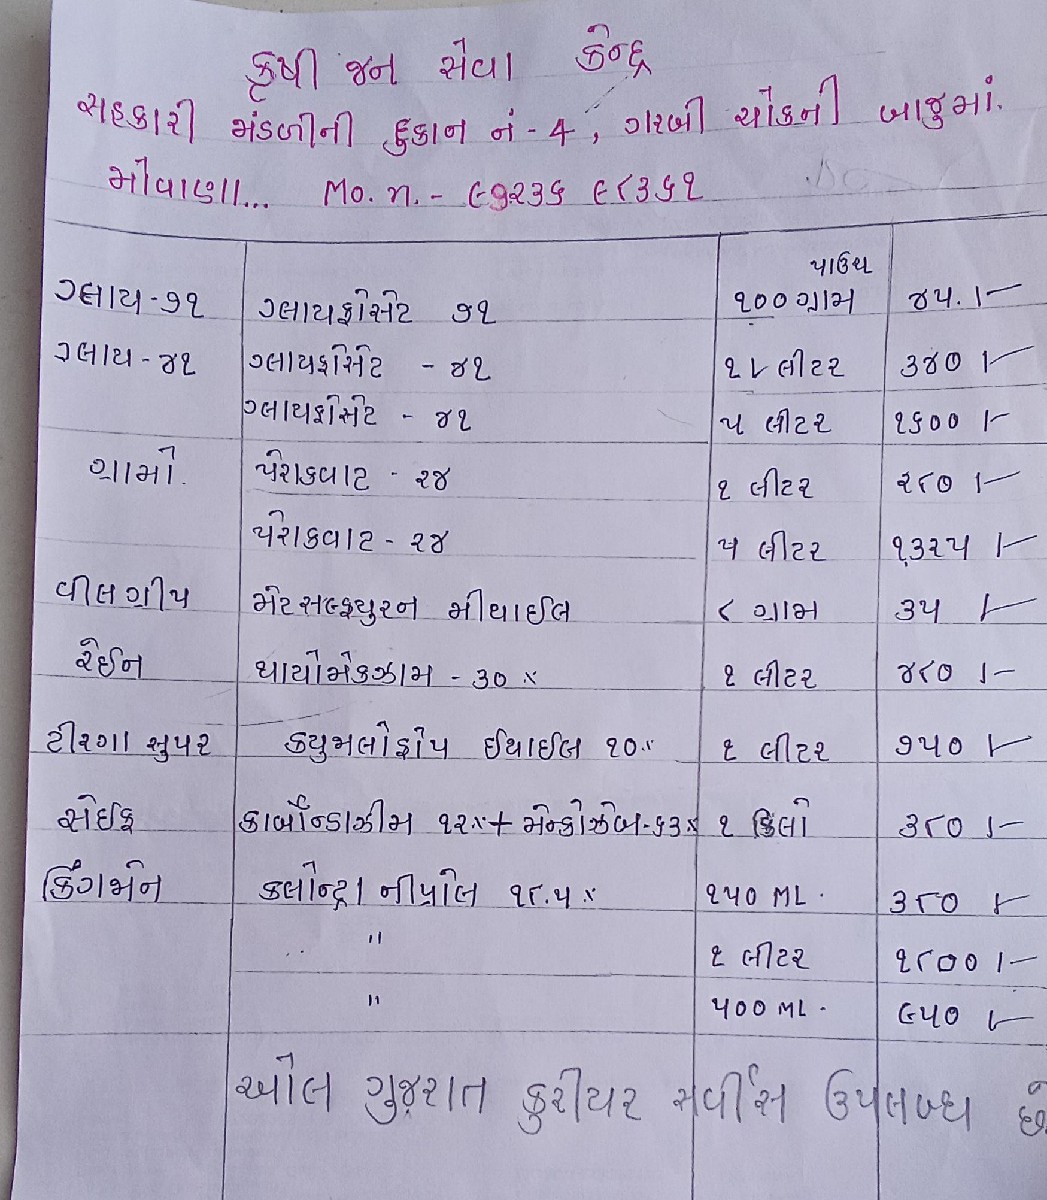 કૃષી જન સેવા કેન્દ્ર
સહકારી મંડળીની દુકાન નં - 4, ગરબી ચોકની બાજુમાં.
મોવાણા... Mo. n. - ૯૭૨૩૬ ૯૮૩૬૧
પાઉચ
ગ્લાય - ૭૧ ગ્લાયફોસેટ ૭૧ ૧૦૦ ગ્રામ ૪૫.૦/-
ગ્લાય - ૪૧ ગ્લાયફોસેટ - ૪૧ ૧ લીટર ૩૪૦ /-
ગ્લાયફોસેટ - ૪૧ ૫ લીટર ૧૬૦૦ /-
ગ્રામો. પેરાકવાટ - ૨૪ ૧ લીટર ૨૮૦ /-
પેરાકવાટ - ૨૪ ૫ લીટર ૧૩૨૫ /-
વીલગ્રીપ મેટસલ્ફ્યુરન મીથાઈલ ૮ ગ્રામ ૩૫ /-
રેઈન થાયોમેકઝામ - ૩૦ % ૧ લીટર ૪૮૦ /-
ટીરગા સુપર ક્યુમલોફોપ ઈથાઈલ ૧૦% ૧ લીટર ૭૫૦ /-
સેઈફ કાર્બોન્ડાઝીમ ૧૨% + મેન્કોઝેબ - ૬૩% ૧ કિલો ૩૮૦ /-
કિંગમેન કલોન્ટ્રાનીપ્રોલ ૧૮.૫ % ૧૫૦ ML. ૩૮૦ /-
" ૧ લીટર ૧૮૦૦ /-
" ૫૦૦ ML. ૯૫૦ /-
ઓલ ગુજરાત કુરીયર સર્વીસ ઉપલબ્ધ છે